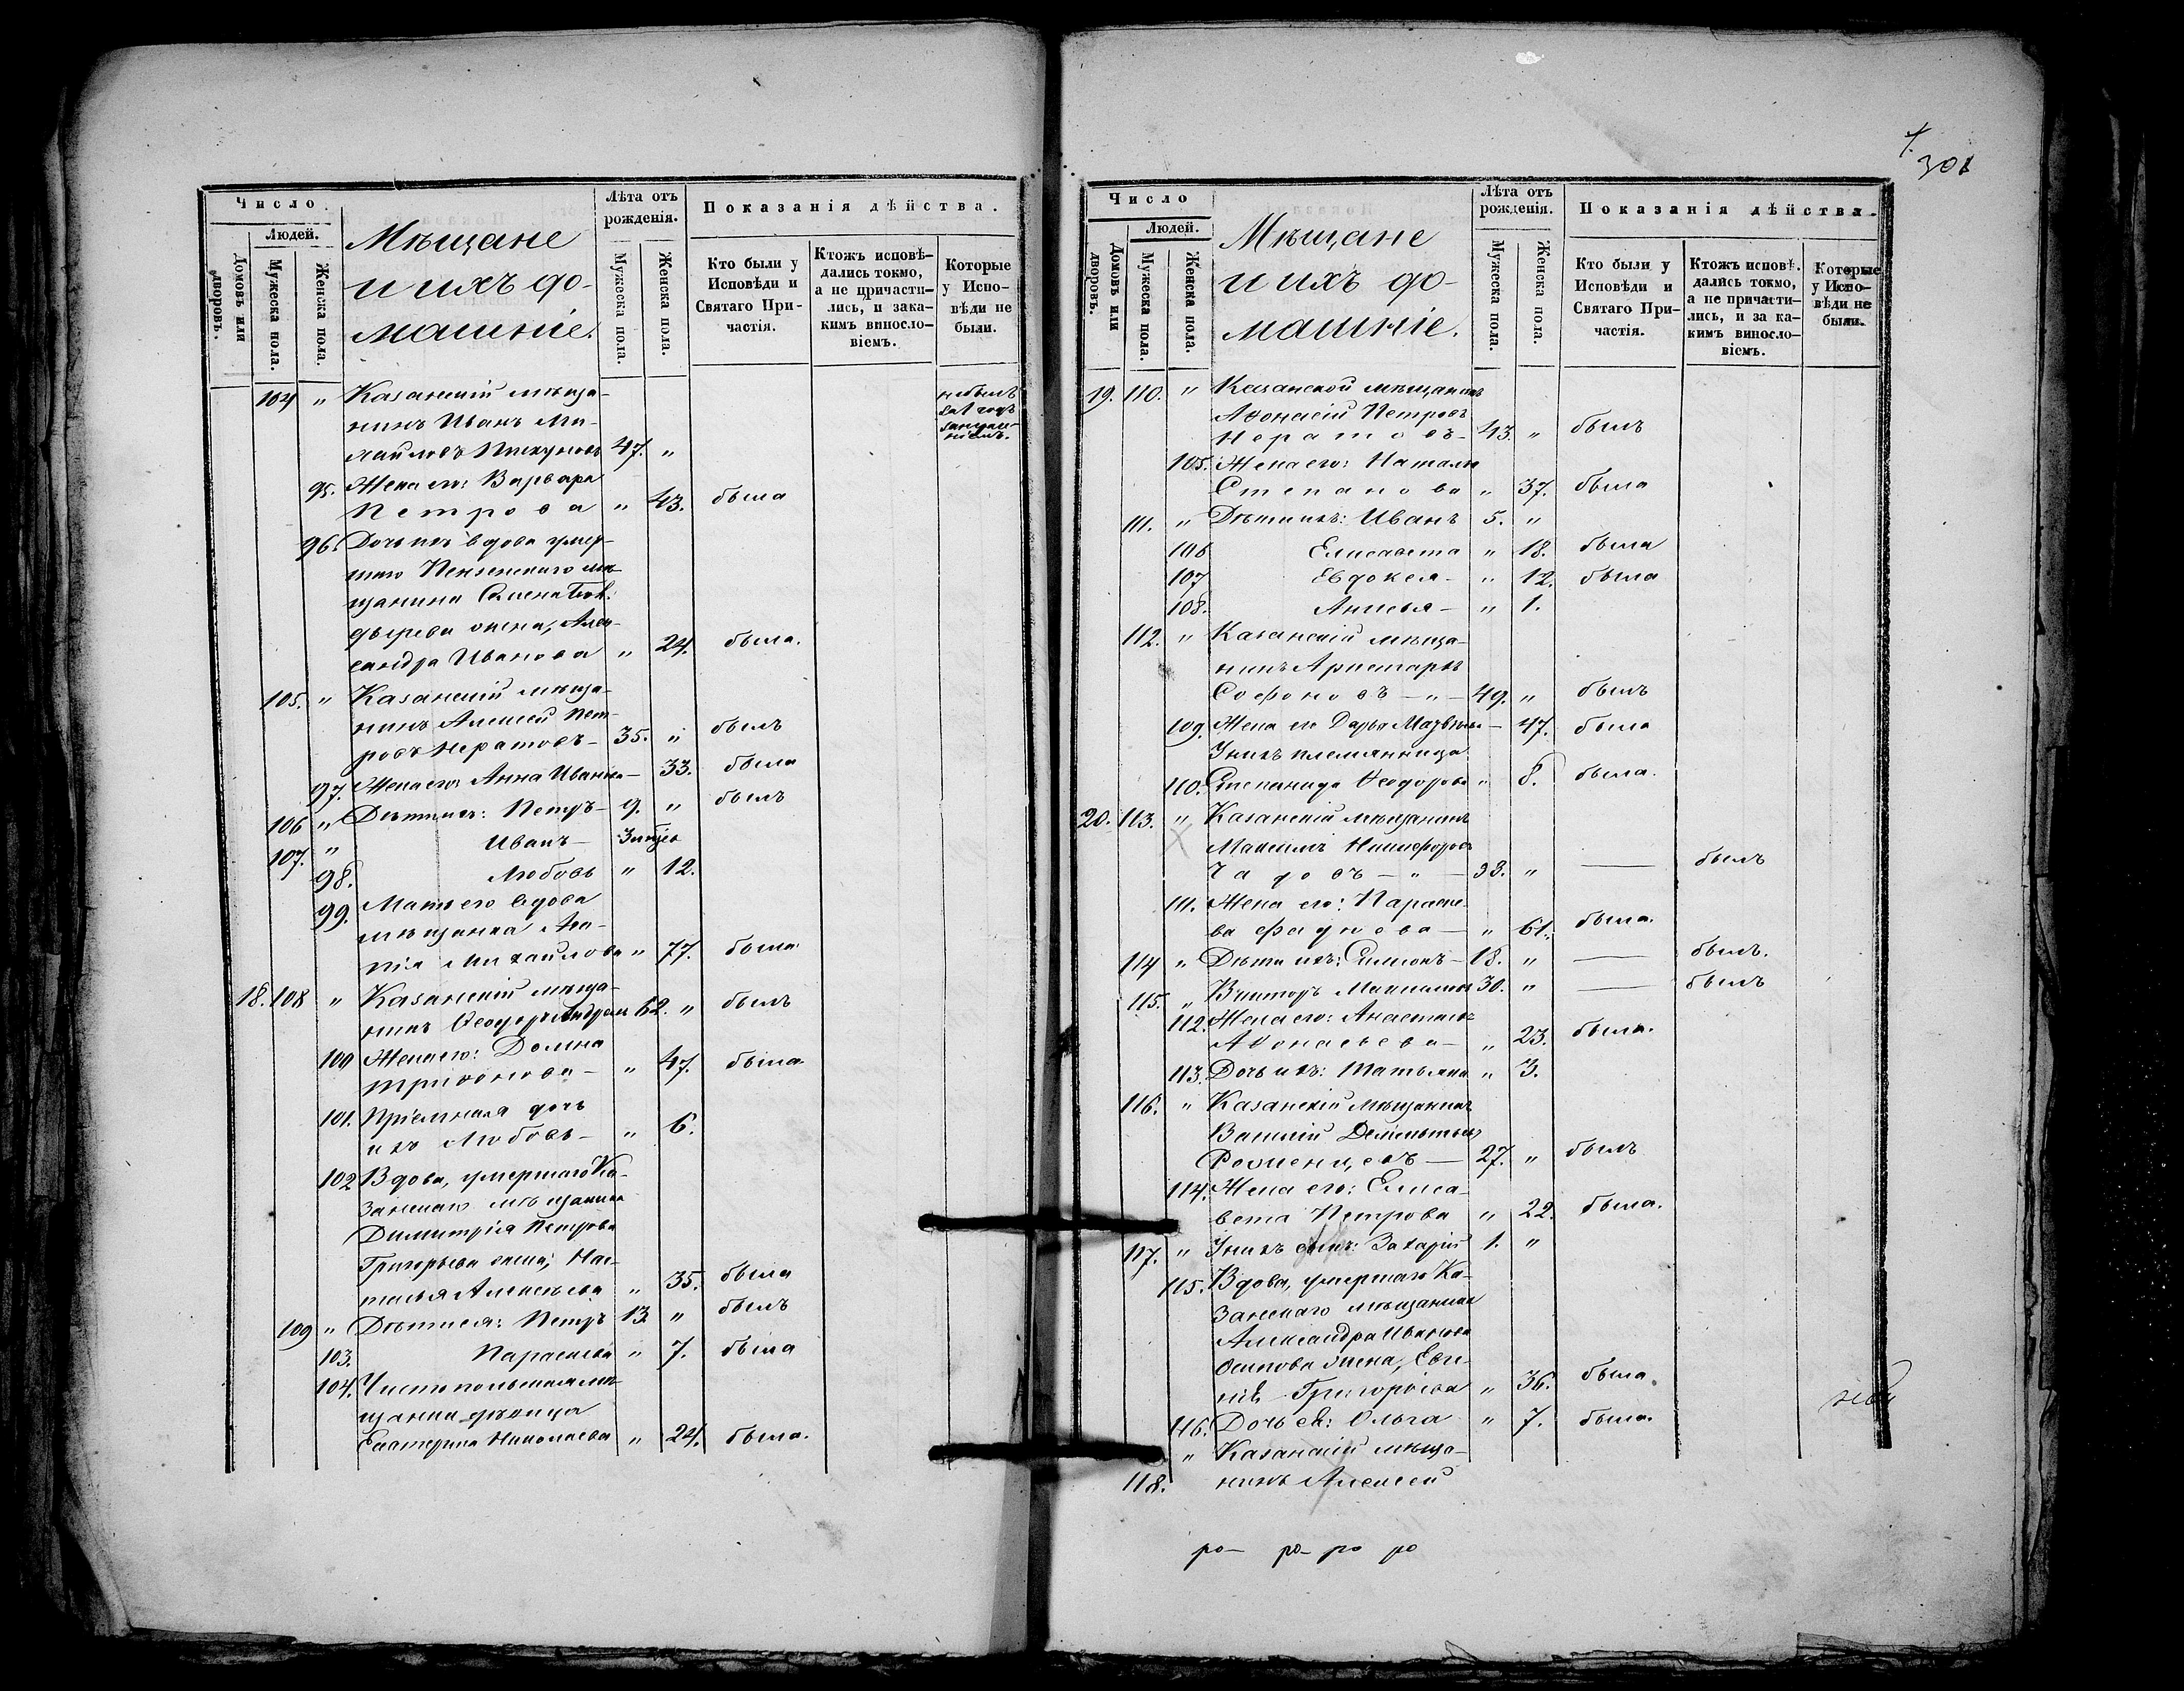 Число.
Людей.
Домовъ или дворовъ.
Мужеска пола.
Женска пола.
Мѣщане
и ихъ до-
машніе.
Лѣта отъ рожденія.
Мужеска пола.
Женска пола.
Показанія дѣйства.
Кто были у Исповѣди и Святаго Причастія.
Ктожъ исповѣ-
дались токмо,
а не причасти-
лись, и зака-
кимъ винословіемъ.
Которые
у Испо-
вѣди не
были.
104 " Казанскій мѣща-
нинъ Иванъ Ми-
хайловъ 47. "
95. Жена его: Варвара
Петрова " 43. была
96. Дочь ихъ вдова умер-
шаго Пензенскаго мѣ-
щанина
жена, Алек-
сандра Иванова " 24. была.
105. " Казанскій мѣща-
нинъ Алексей Пет-
ровъ Нератовъ - 35. " былъ
97. Жена его: Анна Иванова - 33. была
106 " Дѣти ихъ: Петръ - 9. " былъ
107. " Иванъ -
98. Любовь " 12.
99. Мать его вдова
мѣщанка
Михайлова " 77. была
18. 108 " Казанскій мѣща-
нинъ Ѳеодоръ 62. " былъ
100 Жена его: Домна
Триѳонова - " 47. была
101. Пріемная дочь
ихъ Любовь - " 6.
102 Вдова, умершаго Ка-
занскаго мѣщанина
Димитрія Петрова
Григорьева жена, Нас-
тасья Алексѣева " 35. была
109 " Дѣти ея: Петръ 13. " былъ
103. Параскева " 7. была
104. Чистопольская мѣ-
щанка дѣвица
Екатерина Николаева " 24. была.
301
Число
Людей.
Домовъ или дворовъ.
Мужеска пола.
Женска пола.
Мѣщане
и ихъ до-
машніе.
Лѣта отъ рожденія.
Мужеска пола.
Женска пола.
Показанія дѣйства.
Кто были у Исповѣди и Святаго Причастія.
Ктожъ исповѣ-
дались токмо,
а не причасти-
лись, и за ка-
кимъ винословіемъ.
Которые
у Испо-
вѣди не
были.
19. 110. " Казанской мѣщанинъ
Аѳонасій Петровъ
Нератовъ - 43. " былъ
105. Жена его: Наталья
Степанова " 37. была
111. " Дѣти ихъ: Иванъ 5. "
106 Елисавета " 18. была
107 Евдокея - " 12. была
108. Анисья - " 1.
112. " Казанскій мѣща-
нинъ Аристархъ
Софоновъ - " - 49. " былъ
109. Жена его Дарья - 47. была
У нихъ племянница
110. Степанида Ѳеодорова " 8. была.
20. 113. " Казанскій мѣщанинъ
Максимъ Никифоровъ
Чадовъ - " - 38. " былъ
111. Жена его: Параске-
ва Фадѣева - " 61. была.
114 " Дѣти ихъ: Симеонъ - 18. " былъ.
115. " Викторъ Максимовъ 30. " былъ
112. Жена его: Анастасія
Аѳонасьева - " 23. была.
113. Дочь ихъ: Татьяна " 3.
116. " Казанскій мѣщанинъ
Василій Дементьевъ
- 27. " былъ
114. Жена его: Елиса-
вета Петрова " 22. была.
117. " У нихъ сынъ: Захарій 1. "
115. Вдова, умершаго Ка-
занскаго мѣщанина
Александра Иванова
Осипова жена, Евге-
нія Григорьева " 36. была.
116. Дочь ея: Ольга " 7. была.
118. " Казанскій мѣща-
нинъ Алексей
ро- ро- ро ро